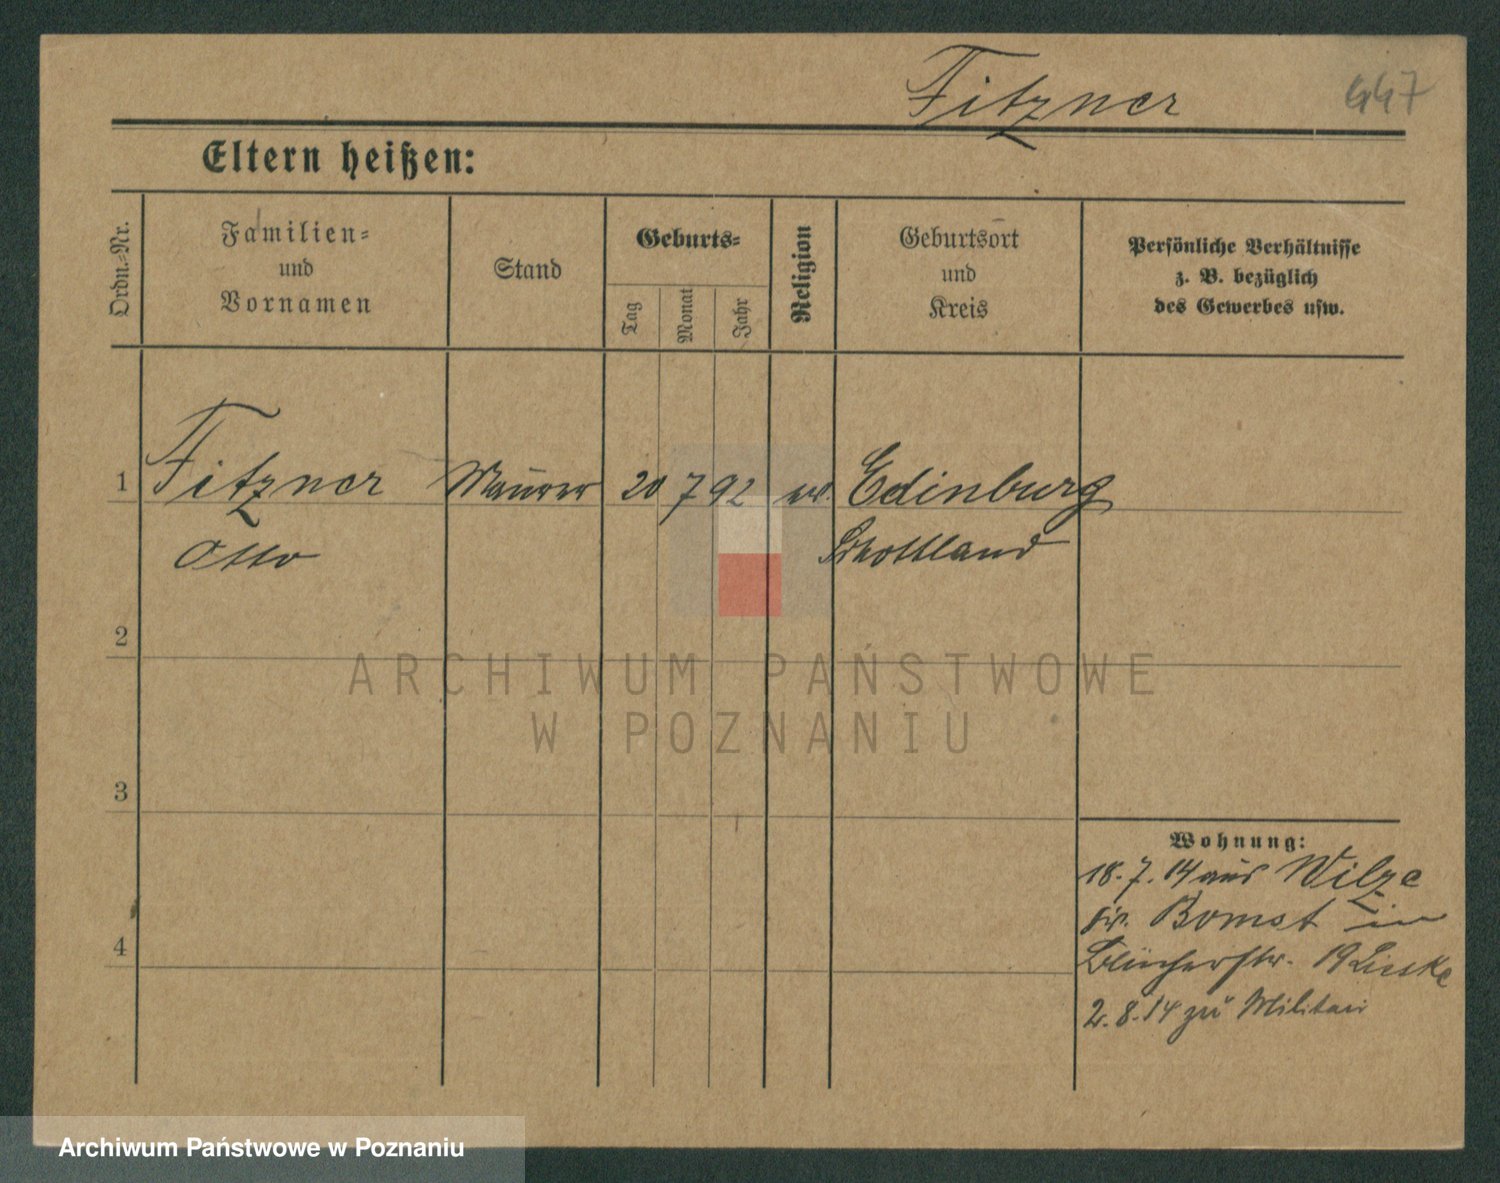 Fitzner 447
Eltern heißen:
Ordn.-Nr.
Familien-
und
Vornamen
Stand
Geburts-
Tag
Monat
Jahr
Religion
Geburtsort
und
Kreis
Persönliche Verhältnisse
z. B. bezüglich
des Gewerbes usw.
1 Fitzner Maurer 20 7 92 ev. Edinburg
Otto Schottland
2
ARCHIWUM PAŃSTWOWE
W POZNANIU
3
Wohnung:
18.7.14 aus Wilze
Kr. Bomst in
4
Blücherstr. 19 Lieske
2.8.14 zu Militär
Archiwum Państwowe w Poznaniu